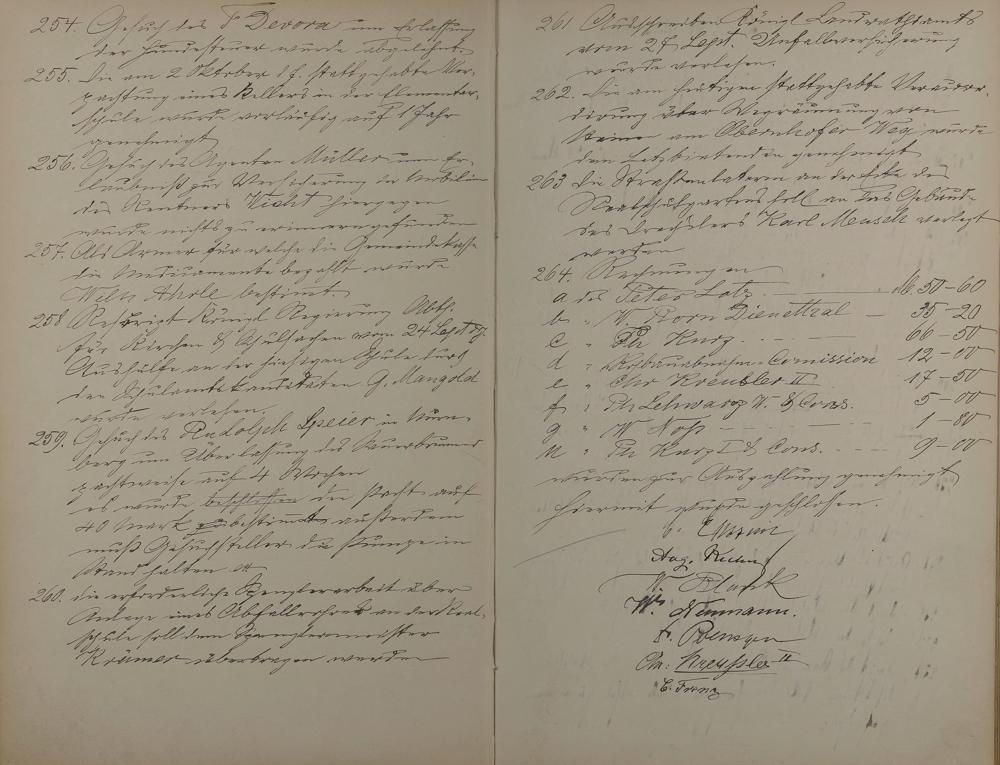 254. Gesuch des F. Devora um Erlassung
der Hundesteuer wurde abgelehnt.
255. Die am 2 Oktober d. J. stattgehabte Ver-
pachtung eines Kellers in der Elementar-
schule wurde vorläufig auf 1 Jahr
genehmigt
256. Gesuch des Agenten Müller um Er-
laubniß zur Versicherung der Mobilien
des Rentners Wicht hiergegen
wurde nichts zu erinnern gefunden
257. Als Armer für welche die Gemeindekasse
die Medicamente bezahlt wurde
Wilh bestimmt.
258 Rescript Königl Regierung Abth.
für Kirchen & Schulsachen vom 24 Sept
Aushülfe an der hiesigen Schule durch
den Schulamts Candidaten G. Mangold
wurde verlesen.
259. Gesuch des Rudolph Speier in Nürn-
berg um Überlassung des Sauerbrunnens
pachtweise auf 4 Wochen
es wurde beschlossen die Pacht auf
40 Mark bestimmt außerdem
muß Gesuchsteller die Pumpe in
Stand halten
260. die erforderliche Spenglerarbeit über
Anlage eines Abfallrohres an der Real-
schule soll dem Spenglermeister
Krämer übertragen werden
261 Ausschreiben Königl Landrathsamts
vom 27 Sept. Unfallversicherung
wurde verlesen.
262. Die am heutigen stattgehabte Veraccor-
dirung über Wegräumung von
Steine am Obernhofer Weg wurde
dem Letzbietenden genehmigt
263 Die Straßenlaterne an der Ecke des
soll an das Gebäude
des Drechslers Karl Meusch verlegt
werden
264. Rechnungen
a des Peter Lotz M. 50-60
b " W. Born Dienethal 35-20
c " Ph Kurz 66-50
d " Comission 12-00
e " Chr Kreusler II 17-50
f " Ph Schwarz W. & Cons. 5-00
g " W Noss 1-80
h " Ph Kurz I & Cons. 9-00
wurden zur Auszahlung genehmigt
Hiermit wurde geschlossen.
Aug.
W.
Wh Neumann.
Chr: Kreussler II
C. Franz